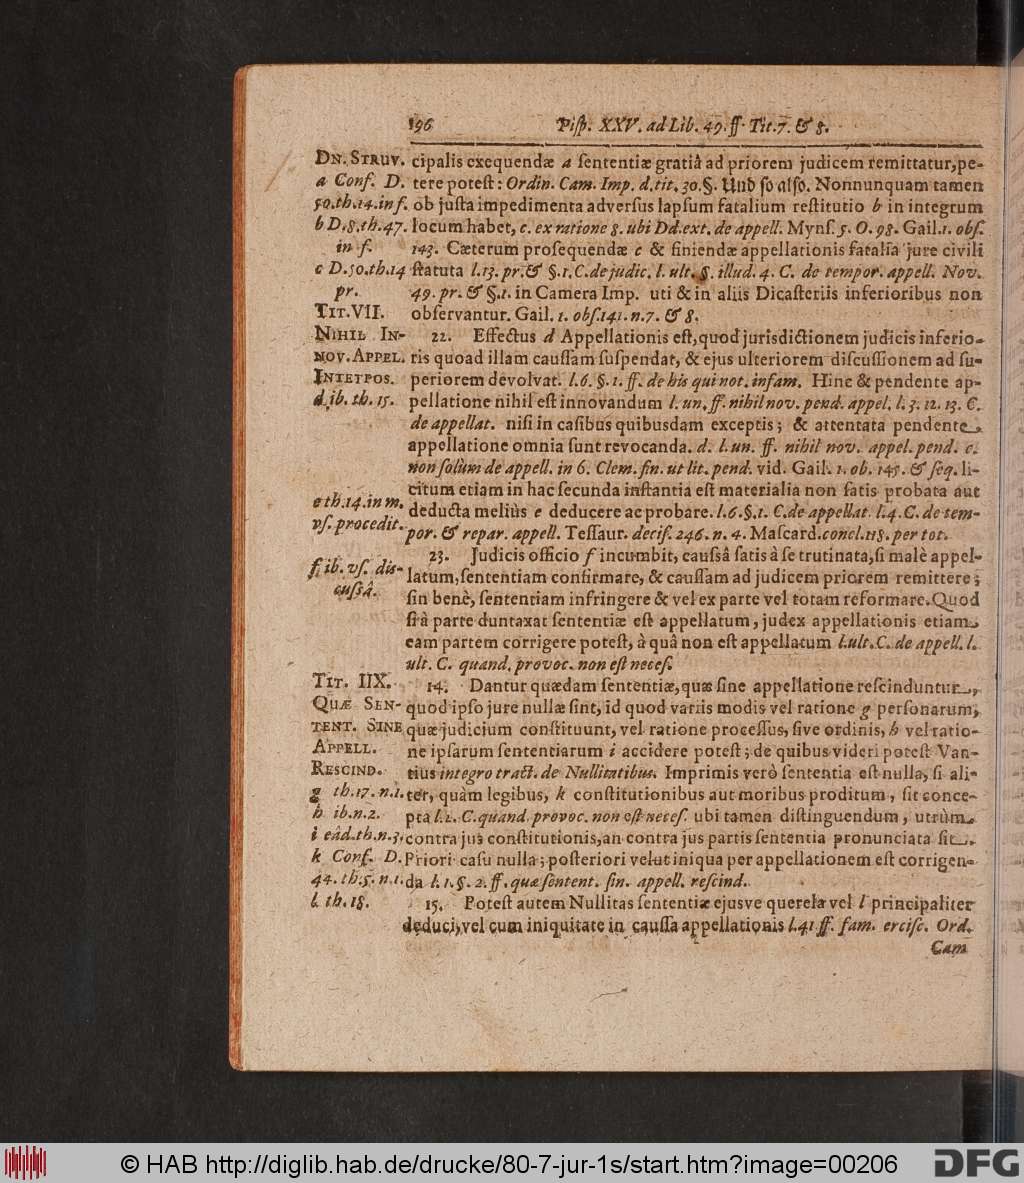 196 Disp. XXV. ad Lib. 49. ff. Tit. 7. & 8.
DN. STRUV.
a Conf. D.
50. th. 14. inf.
b D. 8. th. 47.
in f.
c D. 50. th. 14
pr.
TIT. VII.
NIHIL IN-
NOV. APPEL.
INTETPOS.
d ib. th. 15.
e th. 14. in m.
vſ. procedit.
f ib. vſ. diſ-
cuſſâ.
TIT. IIX.
QUÆ SEN-
TENT. SINE
APPELL.
RESCIND.
g th. 17. n. 1.
h ib. n. 2.
i eâd. th. n. 3.
k Conf. D.
44. th. 5. n. 1.
l. th. 18.
cipalis exequendæ a ſententiæ gratiâ ad priorem judicem remittatur, pe-
tere poteſt: Ordin. Cam. Imp. d. tit. 30. §. Und ſo alſo. Nonnunquam tamen
ob juſta impedimenta adverſus lapſum fatalium reſtitutio b in integrum
locum habet, c. ex ratione 8. ubi Dd. ext. de appell. Mynſ. 5. O. 98. Gail. 1. obſ.
143. Cæterum proſequendæ c & finiendæ appellationis fatalia jure civili
ſtatuta l. 13. pr. & §. 1. C. de judic. l. ult. §. illud. 4. C. de tempor. appell. Nov.
49. pr. & §. 1. in Camera Imp. uti & in aliis Dicaſteriis inferioribus non
obſervantur. Gail. 1. obſ. 141. n. 7. & 8.
22. Effectus d Appellationis eſt, quod jurisdictionem judicis inferio-
ris quoad illam cauſſam ſuſpendat, & ejus ulteriorem diſcuſſionem ad ſu-
periorem devolvat. l. 6. §. 1. ff. de his qui not. infam. Hinc & pendente ap-
pellatione nihil eſt innovandum l. un. ff. nihil nov. pend. appel. l. 3. 12. 13. C.
de appellat. niſi in caſibus quibusdam exceptis; & attentata pendente
appellatione omnia ſunt revocanda. d. l. un. ff. nihil nov. appel. pend. c.
non ſolùm de appell. in 6. Clem. fin. ut lit. pend. vid. Gail. 1. ob. 145. & ſeq. li-
citum etiam in hac ſecunda inſtantia eſt materialia non ſatis probata aut
deducta meliùs e deducere ac probare. l. 6. §. 1. C. de appellat. l. 4. C. de tem-
por. & repar. appell. Teſſaur. deciſ. 246. n. 4. Maſcard. concl. 118. per tot.
23. Judicis officio f incumbit, cauſsâ ſatis à ſe trutinata, ſi malè appel-
latum, ſententiam confirmare, & cauſſam ad judicem priorem remittere;
ſin benè, ſententiam infringere & vel ex parte vel totam reformare. Quod
ſi â parte duntaxat ſententiæ eſt appellatum, judex appellationis etiam
eam partem corrigere poteſt, à quâ non eſt appellatum l. ult. C. de appell. l.
ult. C. quand. provoc. non eſt neceſ.
14. Dantur quædam ſententiæ, quæ ſine appellatione reſcinduntur,
quod ipſo jure nullæ ſint, id quod variis modis vel ratione g perſonarum,
quæ judicium conſtituunt, vel ratione proceſſus, ſive ordinis, h vel ratio-
ne ipſarum ſententiarum i accidere poteſt; de quibus videri poteſt Van-
tius integro tract. de Nullitatibus. Imprimis verò ſententia eſt nulla, ſi ali-
ter, quàm legibus, k conſtitutionibus aut moribus proditum, ſit conce-
pta l. 2. C. quand. provoc. non eſt neceſ. ubi tamen diſtinguendum, utrùm
contra jus conſtitutionis, an contra jus partis ſententia pronunciata ſit.
Priori caſu nulla; poſteriori velut iniqua per appellationem eſt corrigen-
da l. 1. §. 2. ff. quæ ſentent. ſin. appell. reſcind.
15. Poteſt autem Nullitas ſententiæ ejusve querela vel l principaliter
deduci, vel cum iniquitate in cauſſa appellationis l. 41. ff. fam. erciſc. Ord.
Cam
© HAB http://diglib.hab.de/drucke/80-7-jur-1s/start.htm?image=00206
DFG